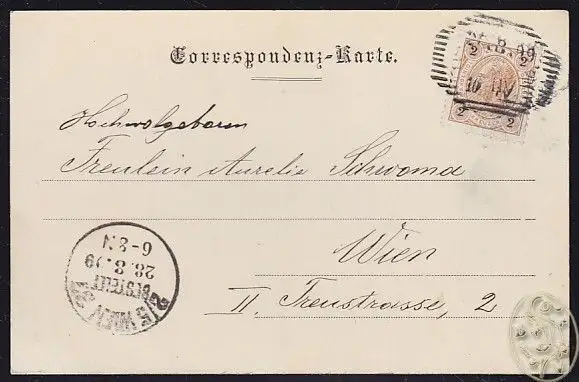 Correspondenz-Karte.
2 2
8. 99
10
2 2
Hochwolgeboren
Freulein Aurelie Schwoma
Wien
II. Treustrasse, 2
6-8 N
28. 8. 99
BESTELLT
WIEN